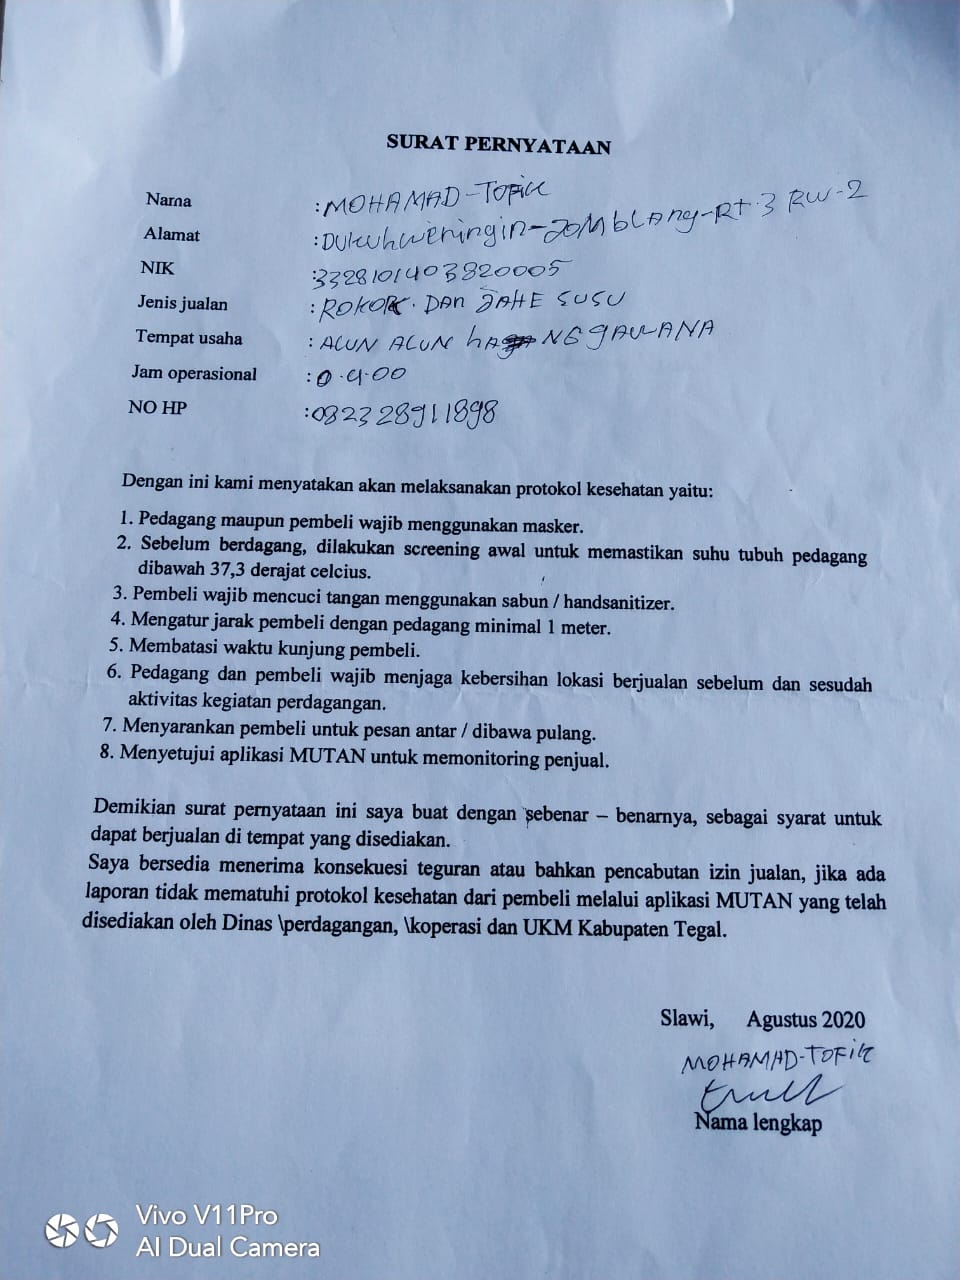 SURAT PERNYATAAN
Nama : MOHAMAD-TOFIK
Alamat : DUKUHWeningin-JOMbLAng-Rt.3 RW-2
NIK : 3328101403820005
Jenis jualan : ROKOK. DAn JAHE SUSU
Tempat usaha : ALUN ALUN hANGGAWANA
Jam operasional : 0.4.00
NO HP : 082328911898
Dengan ini kami menyatakan akan melaksanakan protokol kesehatan yaitu:
1. Pedagang maupun pembeli wajib menggunakan masker.
2. Sebelum berdagang, dilakukan screening awal untuk memastikan suhu tubuh pedagang
dibawah 37,3 derajat celcius.
3. Pembeli wajib mencuci tangan menggunakan sabun / handsanitizer.
4. Mengatur jarak pembeli dengan pedagang minimal 1 meter.
5. Membatasi waktu kunjung pembeli.
6. Pedagang dan pembeli wajib menjaga kebersihan lokasi berjualan sebelum dan sesudah
aktivitas kegiatan perdagangan.
7. Menyarankan pembeli untuk pesan antar / dibawa pulang.
8. Menyetujui aplikasi MUTAN untuk memonitoring penjual.
Demikian surat pernyataan ini saya buat dengan sebenar – benarnya, sebagai syarat untuk
dapat berjualan di tempat yang disediakan.
Saya bersedia menerima konsekuesi teguran atau bahkan pencabutan izin jualan, jika ada
laporan tidak mematuhi protokol kesehatan dari pembeli melalui aplikasi MUTAN yang telah
disediakan oleh Dinas \perdagangan, \koperasi dan UKM Kabupaten Tegal.
Slawi, Agustus 2020
MOHAMAD-TOFIK
Nama lengkap
Vivo V11Pro
AI Dual Camera